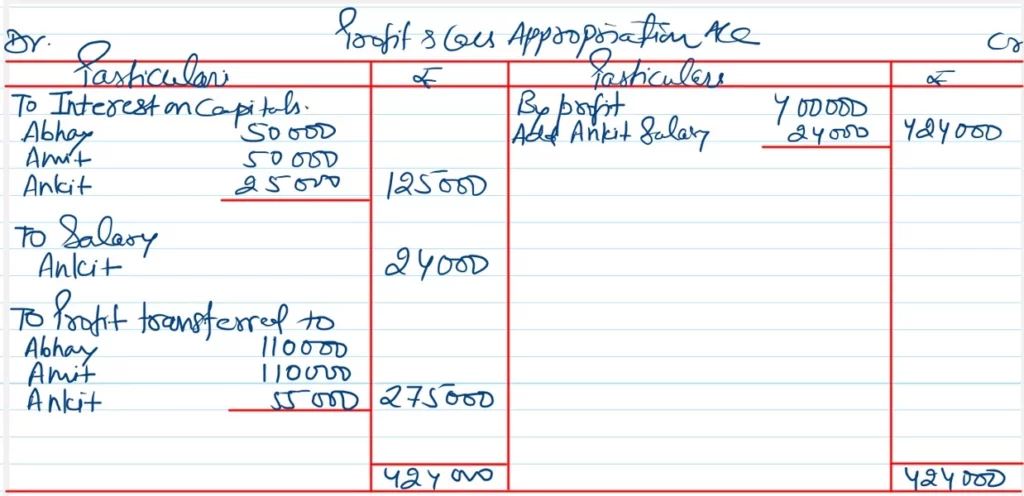 Profit & Loss Appropriation A/c
Dr. Cr
Particulars ₹ Particulars ₹
To Interest on Capitals. By profit 400000
Abhay 50000 Add Ankit Salary 24000 424000
Amit 50000
Ankit 25000 125000
To Salary
Ankit 24000
To Profit transferred to
Abhay 110000
Amit 110000
Ankit 55000 275000
424000 424000